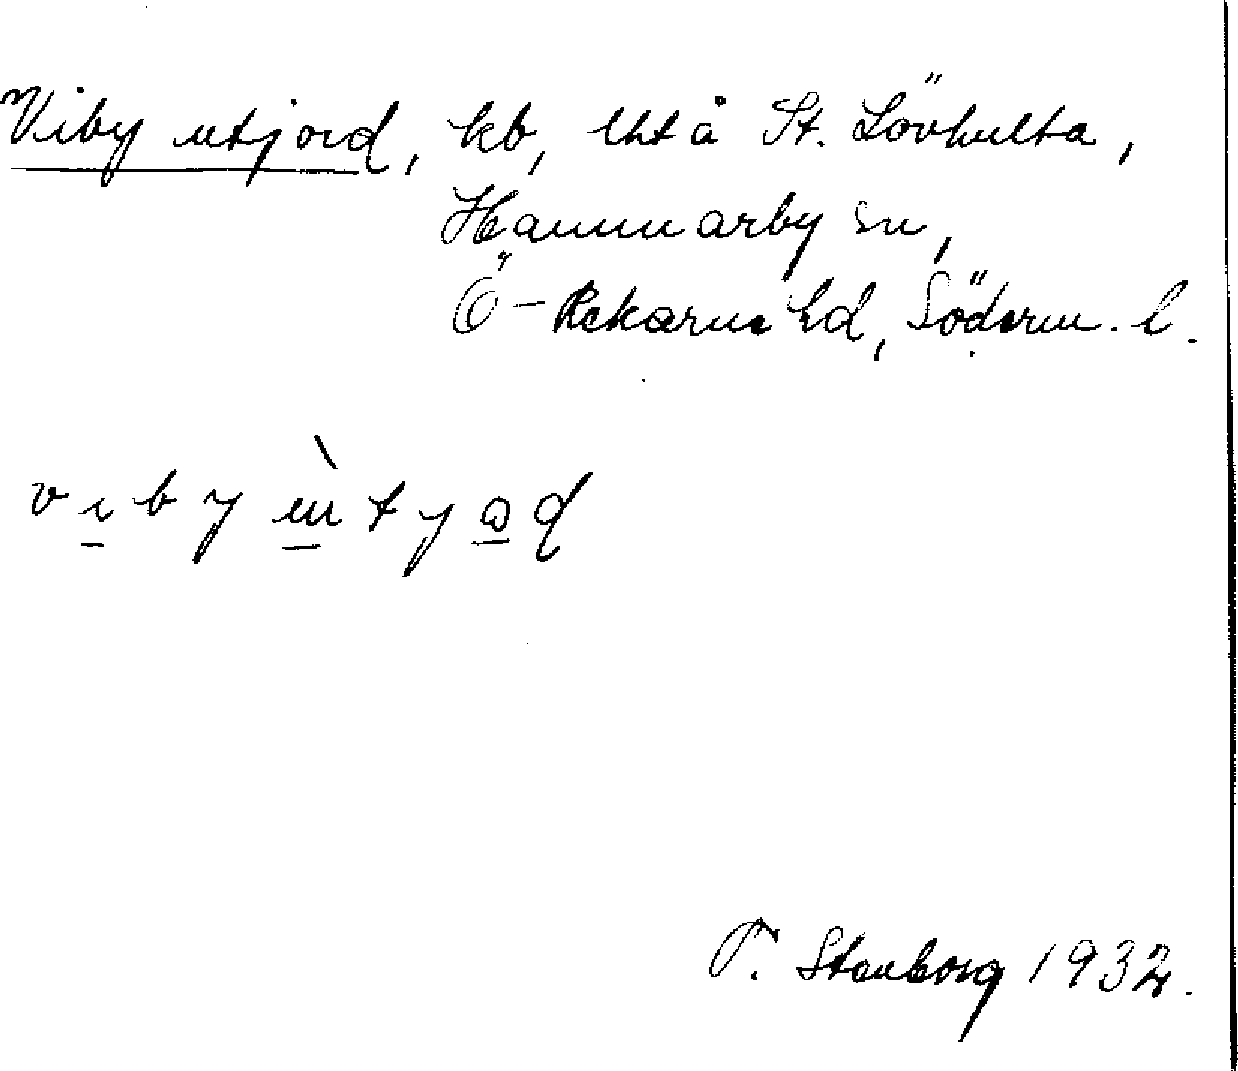 Viby utjord, kb, lht å St. Lövhulta,
Hammarby sn,
Ö-Rekarne hd, Söderm. l.
vıby ɯ̀tyɷd
T. Stenborg 1932.